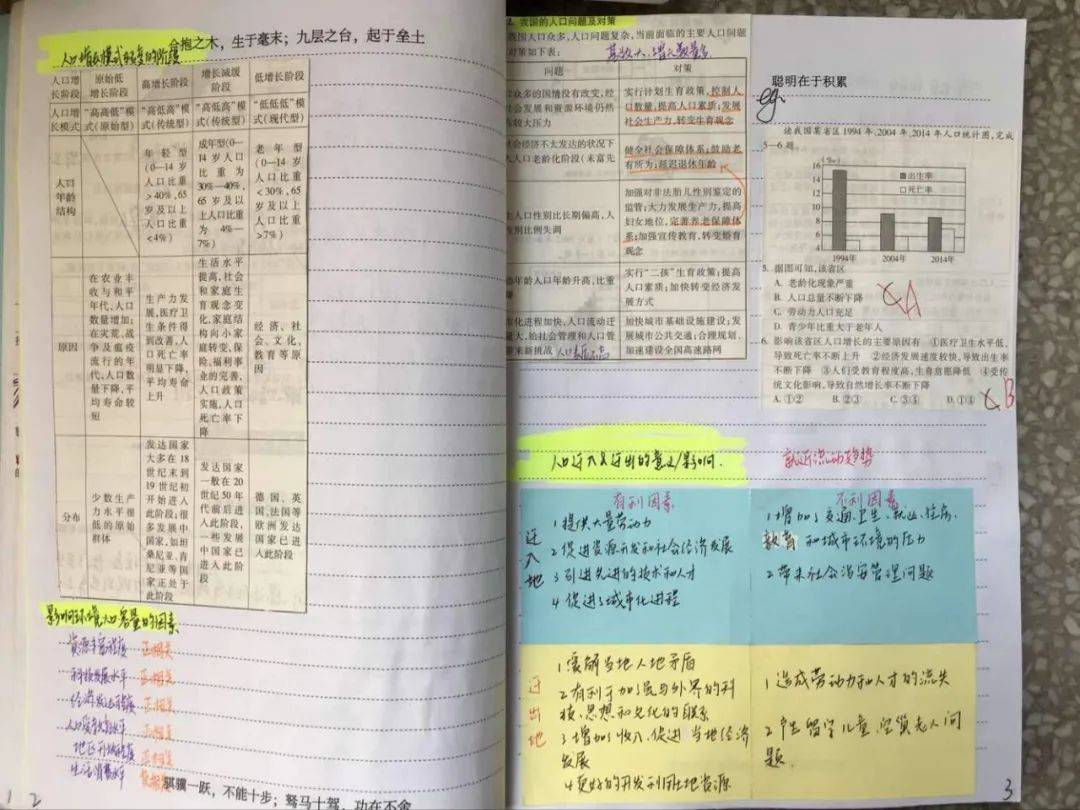 合抱之木，生于毫末；九层之台，起于垒土
人口增长模式转变的阶段
人口增长阶段
原始低增长阶段
高增长阶段
增长减缓阶段
低增长阶段
人口增长模式
“高高低”模式(原始型)
“高低高”模式(传统型)
“高低高”模式(传统型)
“低低低”模式(现代型)
人口年龄结构
年轻型(0—14岁人口比重>40%,65岁及以上人口比重<4%)
成年型(0—14岁人口比重为30%—40%,65岁及以上人口比重为4%—7%)
老年型(0—14岁人口比重<30%,65岁及以上人口比重>7%)
原因
在农业丰收与和平年代,人口数量增加;在灾荒、战争及瘟疫流行的年代,人口数量下降,平均寿命较短
生产力发展,医疗卫生条件得到改善,人口死亡率明显下降,平均寿命上升
生活水平提高,社会和家庭生育观念变化,家庭结构向小家庭转变,保险、福利事业的完善,人口政策实施,人口死亡率下降
经济、社会、文化、教育等原因
分布
少数生产力水平很低的原始群体
发达国家大多在18世纪末到19世纪初开始进入此阶段;很多发展中国家,如坦桑尼亚、肯尼亚等国家正处于此阶段
发达国家一般在20世纪50年代前后进入此阶段,一些发展中国家已进入此阶段
德国、英国、法国等欧洲发达国家已进入此阶段
影响环境人口容量的因素
资源丰富程度 正相关
科技发展水平 正相关
经济发达程度 正相关
人口受教育水平 正相关
地区开放程度 正相关
生活消费水平
骐骥一跃，不能十步；驽马十驾，功在不舍
1 2
2. 我国的人口问题及对策
我国人口众多,人口问题复杂,当前面临的主要人口问题
对策如下表:
基数大、增人数量多
问题
对策
众多的国情没有改变,经
社会发展和资源环境仍然
较大压力
实行计划生育政策,控制人
口数量,提高人口素质;发展
社会生产力,转变生育观念
会经济不太发达的状况下
人口老龄化阶段(未富先
健全社会保障体系;鼓励老
有所为;延迟退休年龄
人口性别比长期偏高,人
性别比例失调
加强对非法胎儿性别鉴定的
监管;大力发展生产力,提高
妇女地位,完善养老保障体
系;加强宣传教育,转变婚育
观念
年龄人口年龄升高,比重
实行“二孩”生育政策;提高
人口素质;加快转变经济发
展方式
化进程加快,人口流动迁
量大,给社会管理和人口管
来新挑战
加快城市基础设施建设;发
展城市公共交通;合理规划、
加速建设全国高速路网
聪明在于积累
eg.
读我国某省区1994年、2004年、2014年人口统计图,完成
5—6题
(‰)
16
14
12
10
8
6
4
出生率
死亡率
1994年 2004年 2014年
5. 据图可知,该省区
A. 老龄化现象严重
B. 人口总量不断下降
C. 劳动力人口充足
D. 青少年比重大于老年人
A
6. 影响该省区人口增长的主要原因有 ①医疗卫生水平低,
导致死亡率不断上升 ②经济发展速度较快,导致出生率
不断下降 ③人们受教育程度高,生育意愿降低 ④受传
统文化影响,导致自然增长率不断下降
A.①② B.②③ C.③④ D.①④
B
人口迁入及迁出的意义/影响
就近流动趋势
有利因素
不利因素
迁入地
1 提供大量劳动力
2 促进资源开发和社会经济发展
3 引进先进的技术和人才
4 促进了城市化进程
1 增加了交通、卫生、就业、住房、
教育和城市环境的压力
2 带来社会治安管理问题
迁出地
1 缓解当地人地矛盾
2 有利于加强与外界的科
技、思想和文化的联系
3 增加了收入,促进当地经济
发展
4 更好的开发利用土地资源
1 造成劳动力和人才的流失
2 产生留守儿童、空巢老人问
题.
3